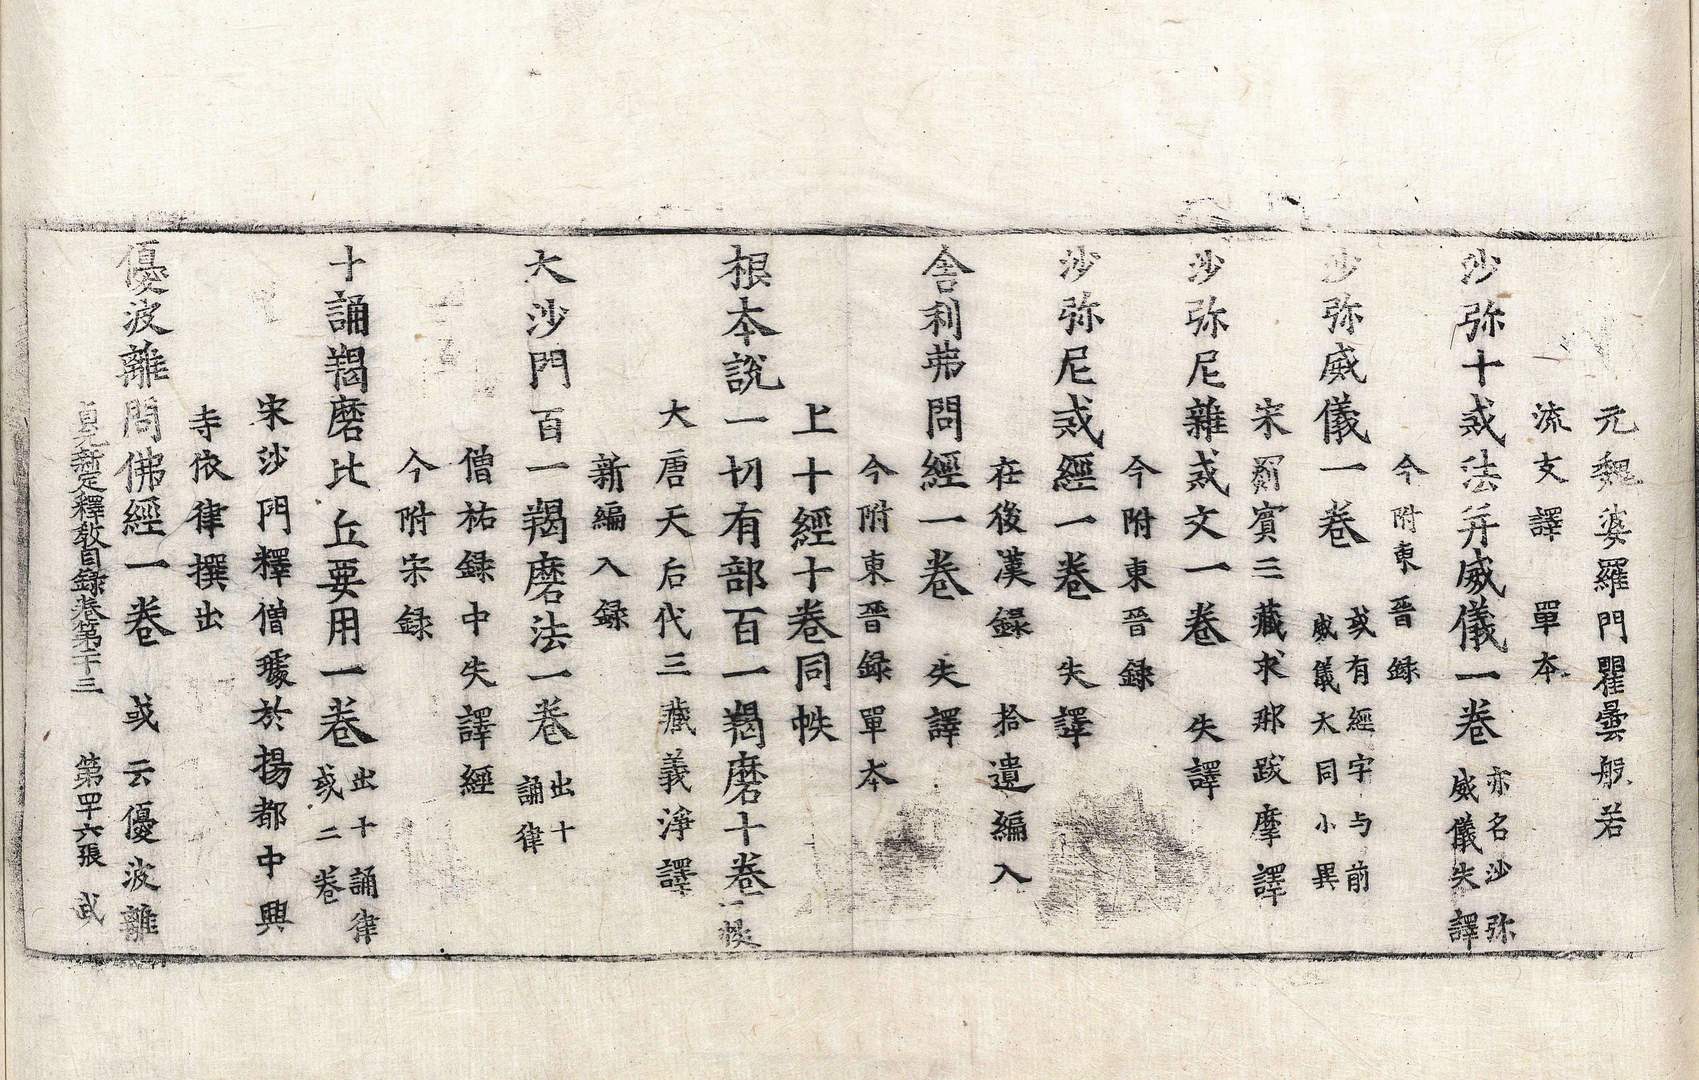 元魏婆羅門瞿曇般若
流支譯 單本
沙弥十戒法并威儀一卷 亦名沙弥威儀失譯
今附東晉錄
沙弥威儀一卷 或有經字与前威儀大同小異
宋罽賓三藏求那跋摩譯
沙弥尼雜戒文一卷 失譯
今附東晉録
沙弥尼戒經一卷 失譯
在後漢録 拾遺編入
舍利弗問經一卷 失譯
今附東晉録單本
上十經十卷同帙
根本說一切有部百一羯磨十卷一帙
大唐天后代三藏義淨譯
新編入録
大沙門百一羯磨法一卷 出十誦律
僧祐録中失譯經
今附宋録
十誦羯磨比丘要用一卷 出十誦律或二卷
宋沙門釋僧璩於揚都中興
寺依律撰出
優波離問佛經一卷 或云優波離
貞元新定釋教目録卷第二十三 第四十六張 武